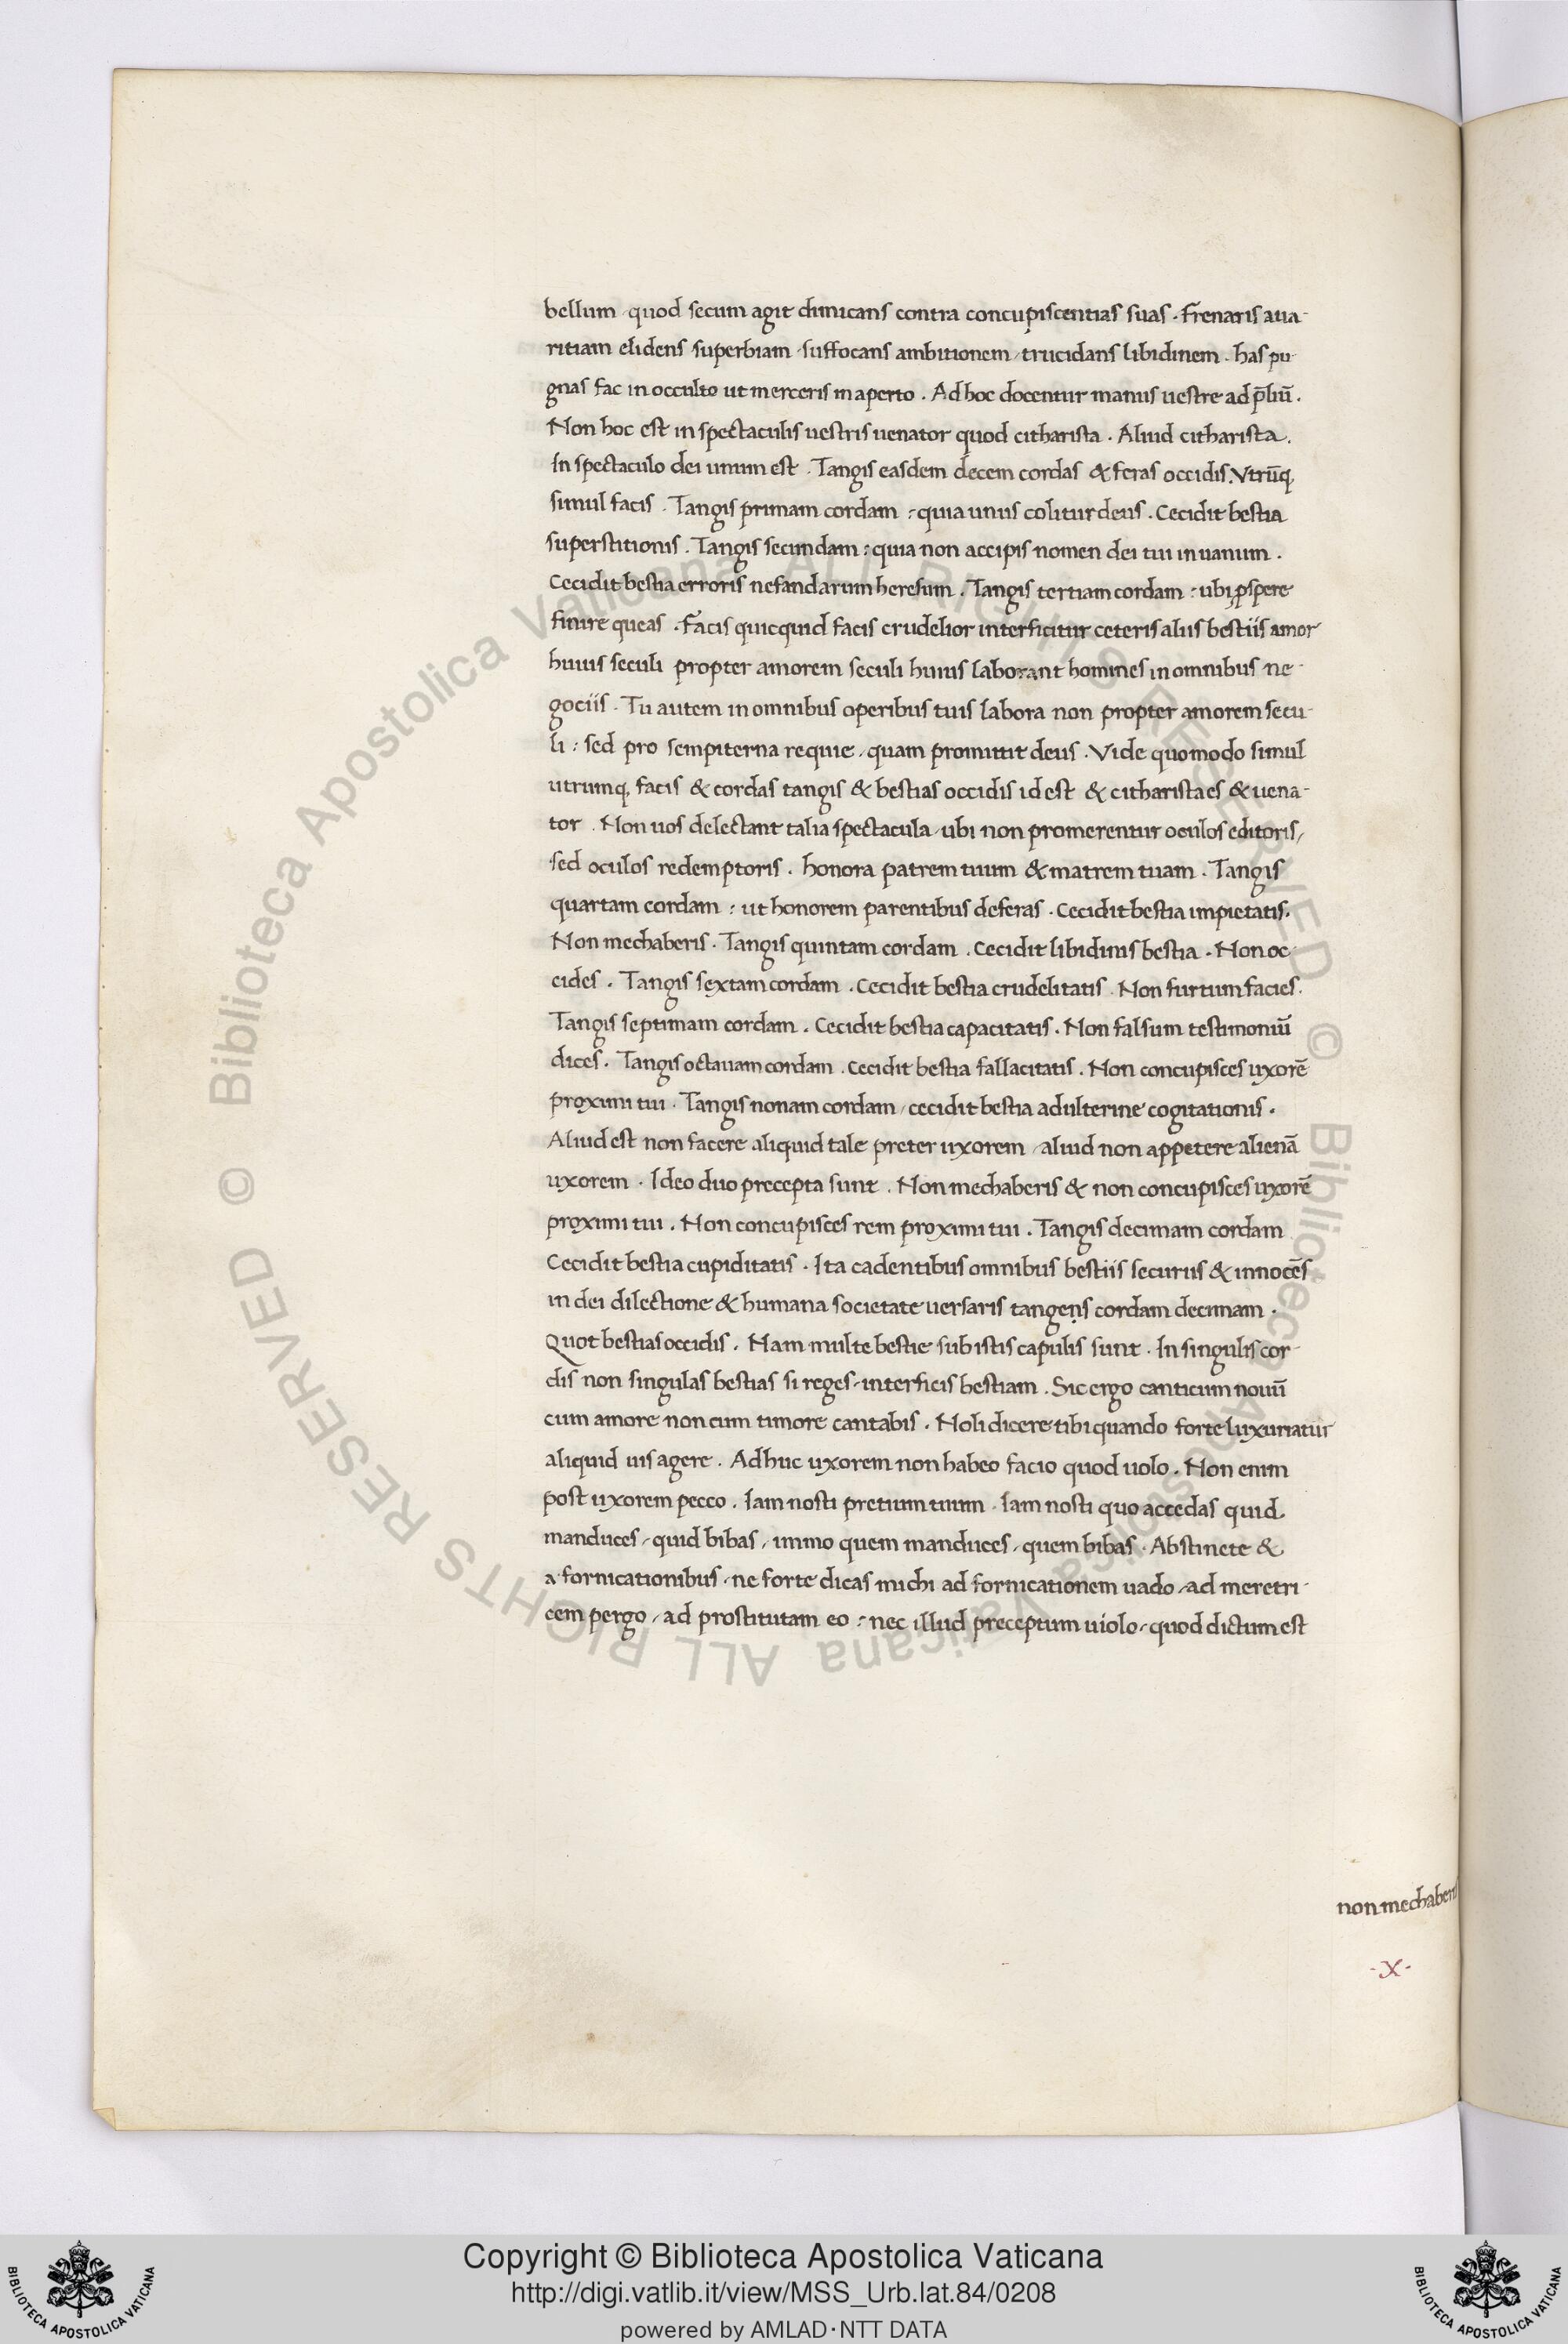 bellum quod secum agit dimicans contra concupiscentias suas . Frenaris aua-
ritiam elidens superbiam suffocans ambitionem trucidans libidinem . has pu
gnas fac in occulto ut merceris in aperto . Ad hoc docentur manus uestre ad p̄liū .
Non hoc est in spectaculis uestris uenator quod citharista . Aliud citharista .
In spectaculo dei unum est . Tangis easdem decem cordas & feras occidis . Vtrūq;
simul facis . Tangis primam cordam : quia unus colitur deus . Cecidit bestia
superstitionis . Tangis secundam : quia non accipis nomen dei tui in uanum .
Cecidit bestia erroris nefandarum heresum . Tangis tertiam cordam : ubi ꝓspere
finire queas . Facis quicquid facis crudelior interficitur ceteris aliis bestiis amor
huius seculi propter amorem seculi huius laborant homines in omnibus ne-
gociis . Tu autem in omnibus operibus tuis labora non propter amorem secu-
li : sed pro sempiterna requie , quam promittit deus . Vide quomodo simul
utrumq; facis & cordas tangis & bestias occidis id est & citharista es & uena-
tor . Non uos delectant talia spectacula , ubi non promerentur oculos editoris ,
sed oculos redemptoris . honora patrem tuum & matrem tuam . Tangis
quartam cordam : ut honorem parentibus deferas . Cecidit bestia impietatis .
Non mechaberis . Tangis quintam cordam . Cecidit libidinis bestia . Non oc-
cides . Tangis sextam cordam . Cecidit bestia crudelitatis . Non furtum facies .
Tangis septimam cordam . Cecidit bestia capacitatis . Non falsum testimoniū
dices . Tangis octauam cordam . Cecidit bestia fallacitatis . Non concupisces uxorē
proximi tui . Tangis nonam cordam , cecidit bestia adulterine cogitationis .
Aliud est non facere aliquid tale preter uxorem , aliud non appetere alienā
uxorem . Ideo duo precepta sunt . Non mechaberis & non concupisces uxorē
proximi tui . Non concupisces rem proximi tui . Tangis decimam cordam
Cecidit bestia cupiditatis . Ita cadentibus omnibus bestiis securus & innocēs
in dei dilectione & humana societate uersaris tangens cordam decimam .
Quot bestias occidis . Nam multe bestie sub istis capulis sunt . In singulis cor-
dis non singulas bestias si reges , interficis bestiam . Sic ergo canticum nouū
cum amore non cum timore cantabis . Noli dicere tibi quando forte luxuriatur
aliquid uis agere . Adhuc uxorem non habeo facio quod uolo . Non enim
post uxorem pecco . Iam nosti pretium tuum . Iam nosti quo accedas quid
manduces , quid bibas , immo quem manduces , quem bibas . Abstinete &
a fornicationibus , ne forte dicas michi ad fornicationem uado , ad meretri-
cem pergo , ad prostitutam eo : nec illud preceptum uiolo , quod dictum est
non mechaberis
-X-
© Biblioteca Apostolica Vaticana ALL RIGHTS RESERVED © Biblioteca Apostolica Vaticana ALL RIGHTS RESERVED
Copyright © Biblioteca Apostolica Vaticana
http://digi.vatlib.it/view/MSS_Urb.lat.84/0208
powered by AMLAD·NTT DATA
BIBLIOTECA APOSTOLICA VATICANA
BIBLIOTECA APOSTOLICA VATICANA